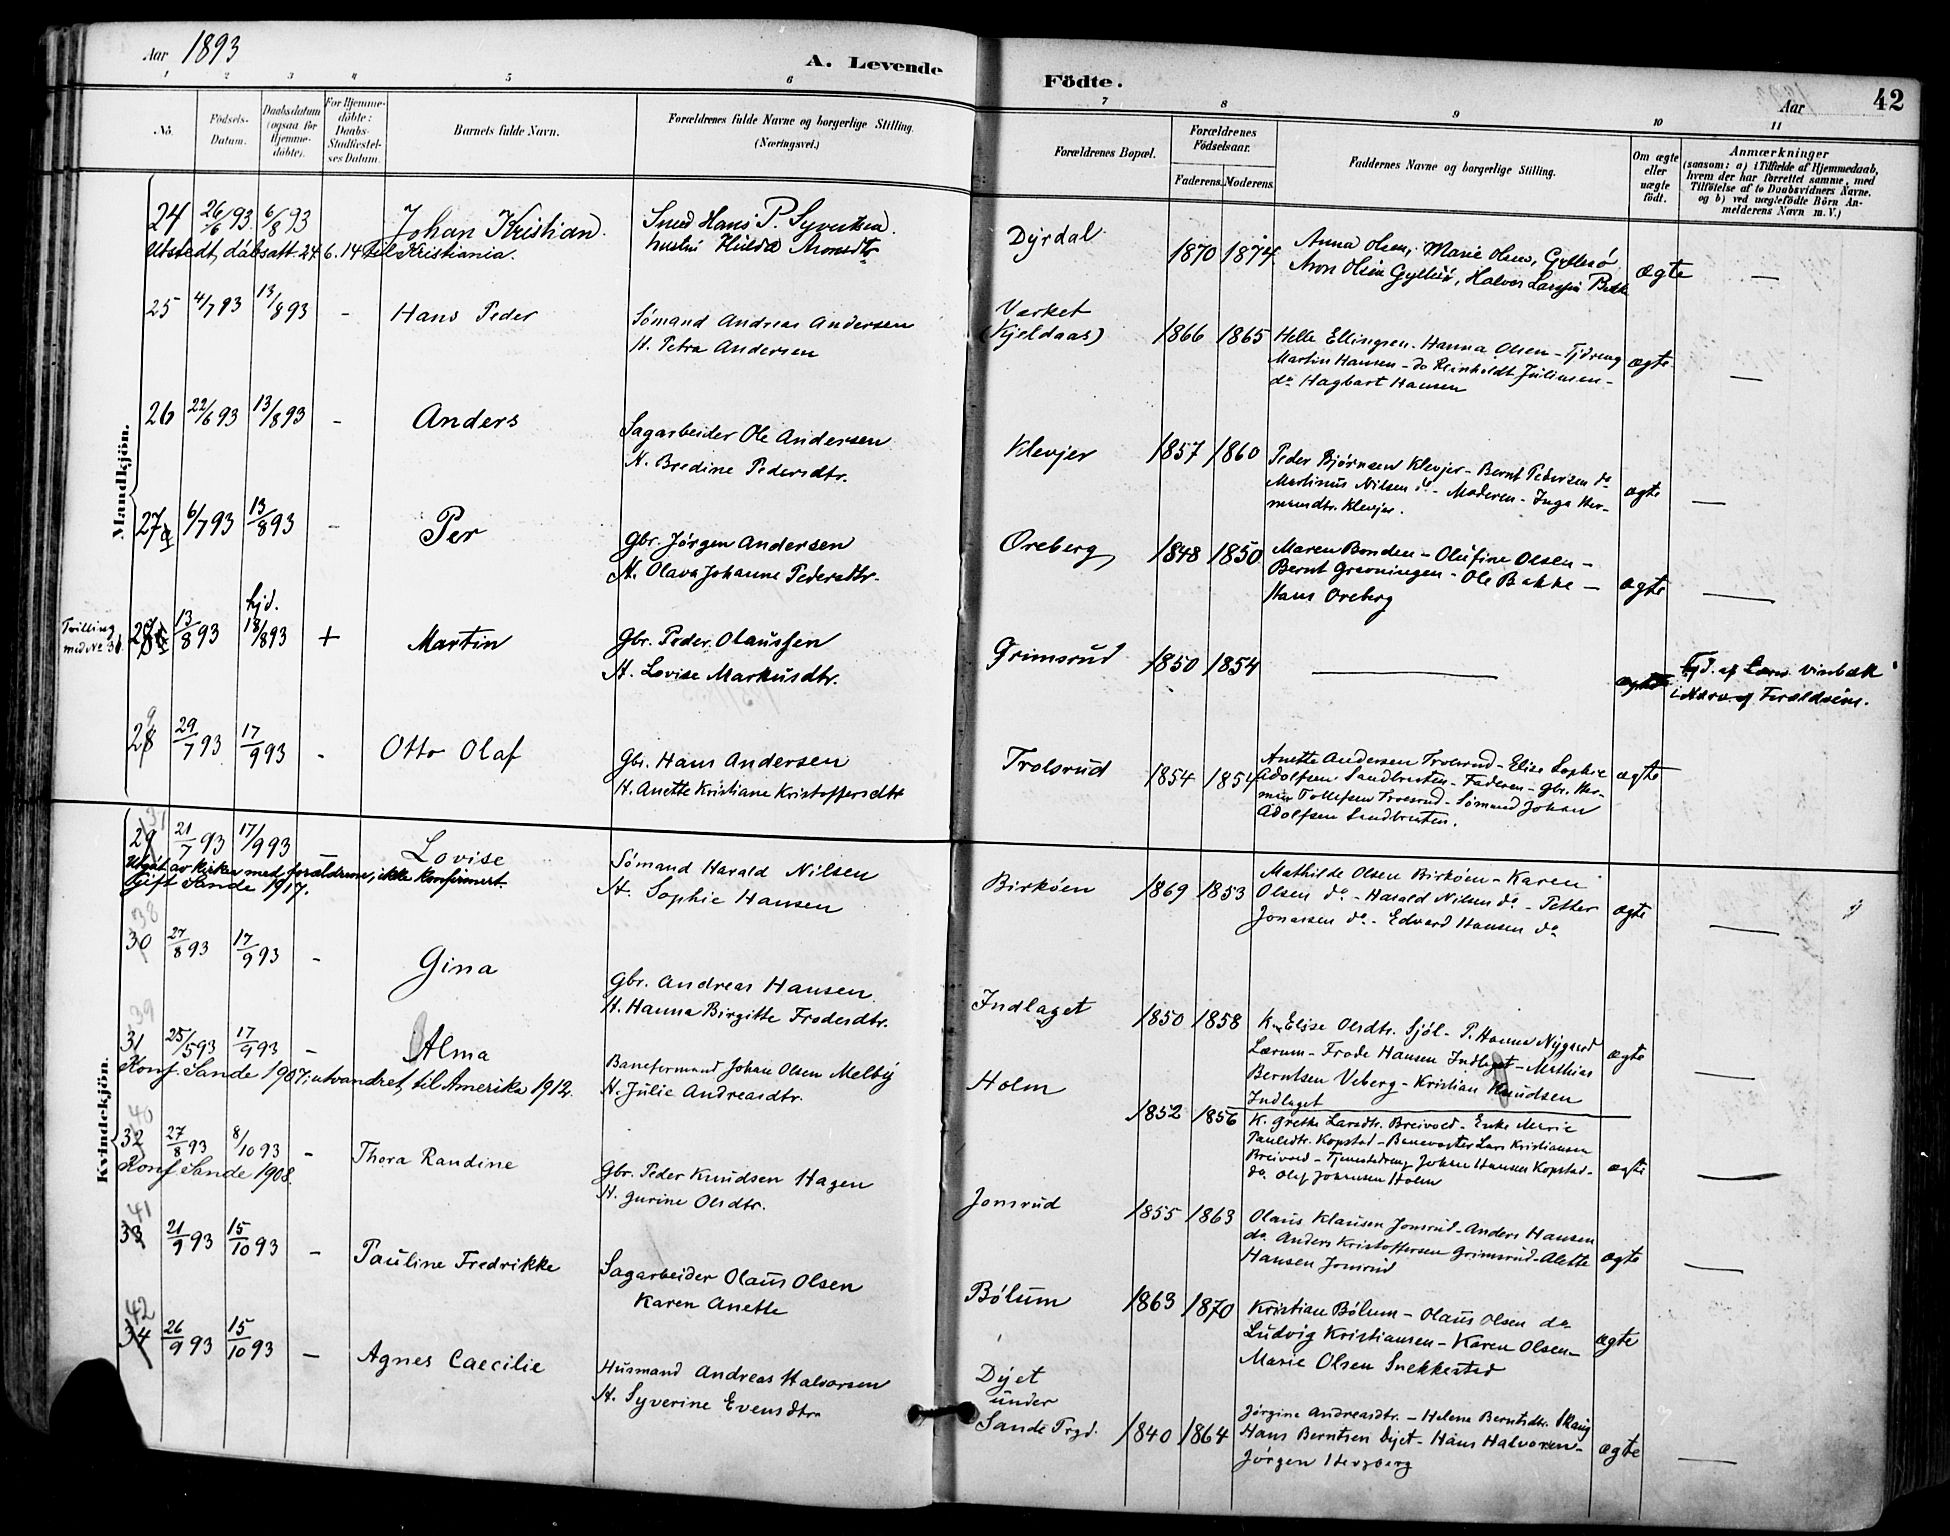 Aar 1893
A. Levende Födte.
Aar
42
1 2 3 4 5 6 7 8 9 10 11
No.
Födsels-Datum.
Daabsdatum (ogsaa for Hjemme-døbte).
For Hjemme-døbte: Daabs-Stadfæstel-ses Datum.
Barnets fulde Navn.
Forældrenes fulde Navne og borgerlige Stilling. (Næringsvei.)
Forældrenes Bopæl.
Forældrenes Födselsaar.
Faderens. Moderens.
Faddernes Navne og borgerlige Stilling.
Om ægte eller uægte født.
Anmærkninger
(saasom: a) i Tilfælde af Hjemmedaab,
hvem der har forrettet samme, med
Tilföielse af to Daabsvidners Navne.
og b) ved uægtefödte Börn An-
melderens Navn m. V.)
Mandkjön.
24 26/6 93 6/8 93 Johan Kristian. Smed Hans P. Syvertsen.
hustru Hulda Aronsdtr
Utstedt dåbsatt. 24.6.14 til Kristiania.
Dyrdal 1870 1874 Anna Olsen, Marie Olsen, Gyltesø
Aron Olsen Gyltesø, Halvor Larssen Bakke
ægte —
25 4/7 93 13/8 93 - Hans Peder Sømand Andreas Andersen
H. Petra Andersen
Værket
(Kjeldaas) 1866 1865 Helle Ellingsen - Hanna Olsen - Tjdreng
Martin Hansen - do Reinholdt Juliusen -
do Hagbart Hansen
ægte —
26 22/6 93 13/8 93 - Anders Sagarbeider Ole Andersen
H. Bredine Pedersdtr.
Klevjer 1857 1860 Peder Bjørnsen Klevjer - Bernt Pedersen do
Martinus Nilsen do - Moderen - Inga Her-
mandtr. Klevjer.
ægte —
27 a 6/7 93 13/8 93 - Per Gbr. Jørgen Andersen
H. Olava Johanne Pedersdtr.
Oreberg 1848 1850 Maren Bonden - Olufine Olsen -
Bernt Grøvningen - Ole Bakke -
Hans Oreberg
ægte —
Tvilling
med No 36.
28 13/8 93 hjd.
18/8 93 + Martin Gbr. Peder Olaussen
H. Lovise Markusdtr.
Grimsrud 1850 1854 — ægte Hjd. af Lars Vinbæk
i Nærv. af Forældrene.
28 9 29/7 93 17/9 93 - Otto Olaf Gbr. Hans Andersen
H. Anette Kristiane Kristoffersdtr
Trolsrud 1854 1854 Anette Andersen Trolsrud - Elise Sophie
Adolfsen Sandbruten - Faderen - gbr. Her-
man Tollefsen Trolsrud - Sømand Johan
Adolfsen Sandbruten.
ægte
Kvindekjön.
29 37 21/7 93 17/9 93 - Lovise Sømand Harald Nilsen
H. Sophie Hansen
Utgåt av kirken med forældrene, ikke konfirmert.
Gift Sande 1917.
Birkøen 1869 1853 Mathilde Olsen Birkøen - Karen
Olsen do - Harald Nilsen do - Petter
Jonassen do - Edvard Hansen do
ægte —
38
30 27/8 93 17/9 93 - Gina Gbr. Andreas Hansen
H. Hanna Birgitte Frodesdtr.
Indlaget 1850 1858 K. Elise Olsdtr. Sjøl - P. Hanna Nygaard
Lærum - Frode Hansen Indlaget - Mathias
Berntsen Veberg - Kristian Knudsen
Indlaget
ægte —
39
31 25/5 93 17/9 93 - Alma Baneformand Johan Olsen Melby
H. Julie Andreasdtr.
Konf. Sande 1907, utvandret til Amerika 1912.
Holm 1852 1856 K. Grethe Larsdtr. Breivold - Enke Marie
Paulsdtr. Kopstad - Banevogter Lars Kristiansen
Breivold - Tjenestedreng Johan Hansen Kopstad -
do Olaf Johansen Holm
ægte —
40
32 27/8 93 8/10 93 - Thora Randine Gbr. Peder Knudsen Hagen
H. Gurine Olsdtr.
Konf. Sande 1908.
Jonsrud 1855 1863 Olaus Klausen Jonsrud - Anders Hansen
do Anders Kristoffersen Grimsrud - Alette
Hansen Jonsrud
ægte —
41
33 21/9 93 15/10 93 - Pauline Fredrikke Sagarbeider Olaus Olsen
Karen Anette
Bølum 1863 1870 Kristian Bølum - Olaus Olsen do
Ludvig Kristiansen - Karen Olsen -
Marie Olsen Snekkestad
ægte
42
34 26/9 93 15/10 93 - Agnes Caecilie Husmand Andreas Halvorsen
H. Syverine Evensdtr
Dyet
under
Sande Prgd. 1840 1864 Jørgine Andreasdtr. - Helene Berntsdtr. Skaug
Hans Berntsen Dyet - Hans Halvorsen -
Jørgen Hergberg
ægte —